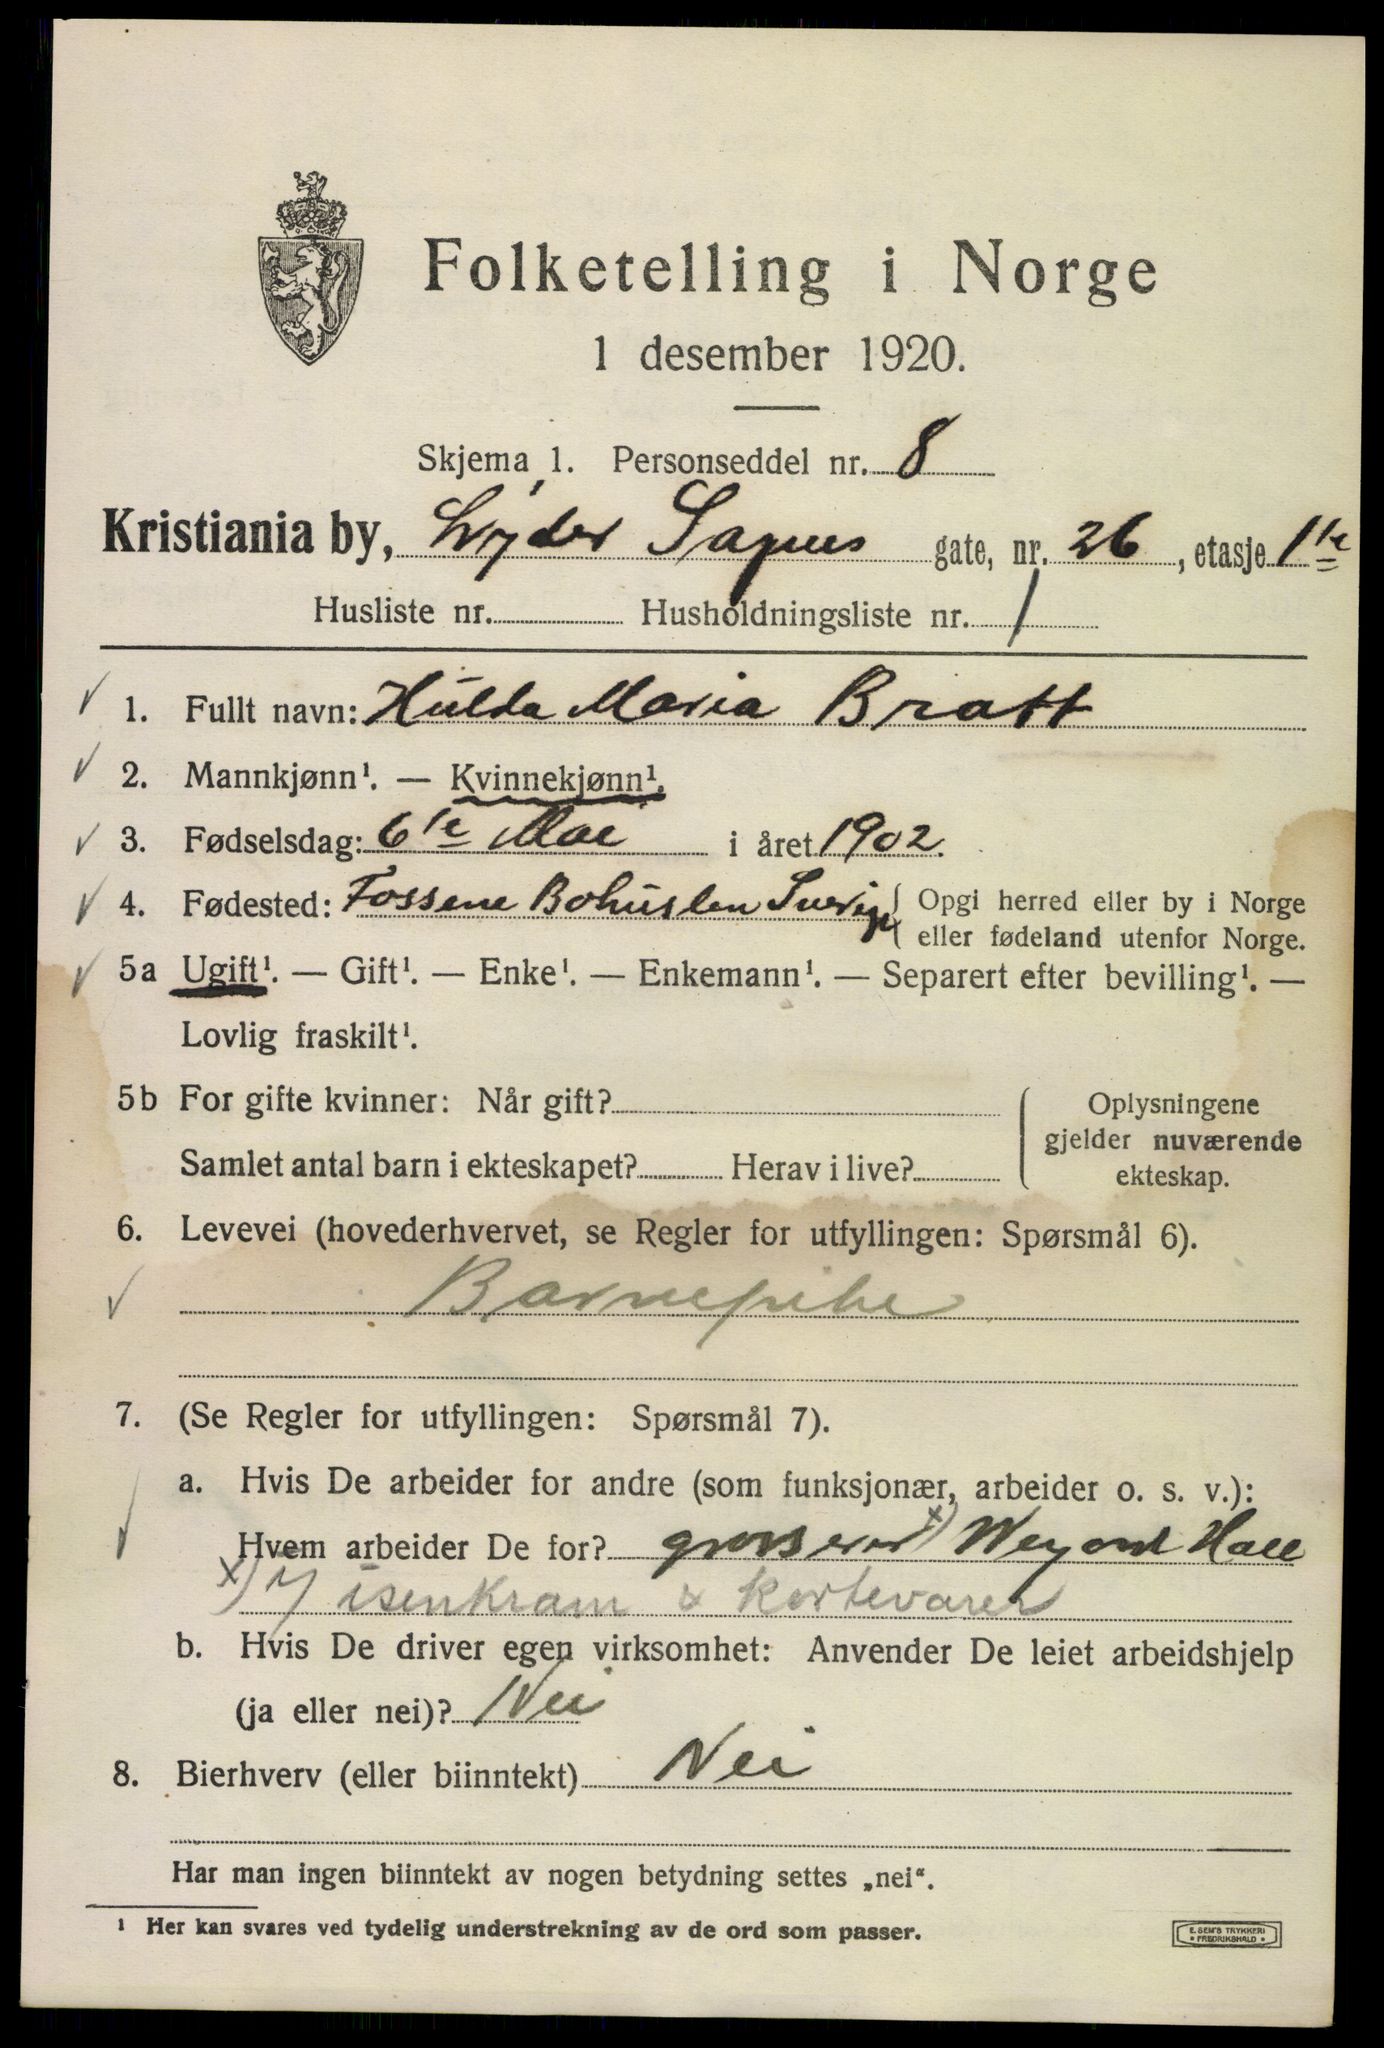 Folketelling i Norge
1 desember 1920.
Skjema 1. Personseddel nr. 8
Kristiania by, Lyder Sagens gate, nr. 26, etasje 1ste
Husliste nr. Husholdningsliste nr. 1
1. Fullt navn: Hulda Maria Bratt
2. Mannkjønn¹. — Kvinnekjønn¹.
3. Fødselsdag: 6te Mai i året 1902.
4. Fødested: Fossene Bohuslen Sverige { Opgi herred eller by i Norge
eller fødeland utenfor Norge.
5a Ugift¹. — Gift¹. — Enke¹. — Enkemann¹. — Separert efter bevilling¹. —
Lovlig fraskilt¹.
5b For gifte kvinner: Når gift? { Oplysningene
gjelder nuværende
Samlet antal barn i ekteskapet? Herav i live?
ekteskap.
6. Levevei (hovederhvervet, se Regler for utfyllingen: Spørsmål 6).
Barnepike
7. (Se Regler for utfyllingen: Spørsmål 7).
a. Hvis De arbeider for andre (som funksjonær, arbeider o. s. v.):
Hvem arbeider De for? grosserer x)
x) i isenkram & kortevarer
b. Hvis De driver egen virksomhet: Anvender De leiet arbeidshjelp
(ja eller nei)? Nei
8. Bierhverv (eller biinntekt) Nei
Har man ingen biinntekt av nogen betydning settes „nei“.
¹ Her kan svares ved tydelig understrekning av de ord som passer.
E. SEM'S TRYKKERI
• FREDRIKSHALD •